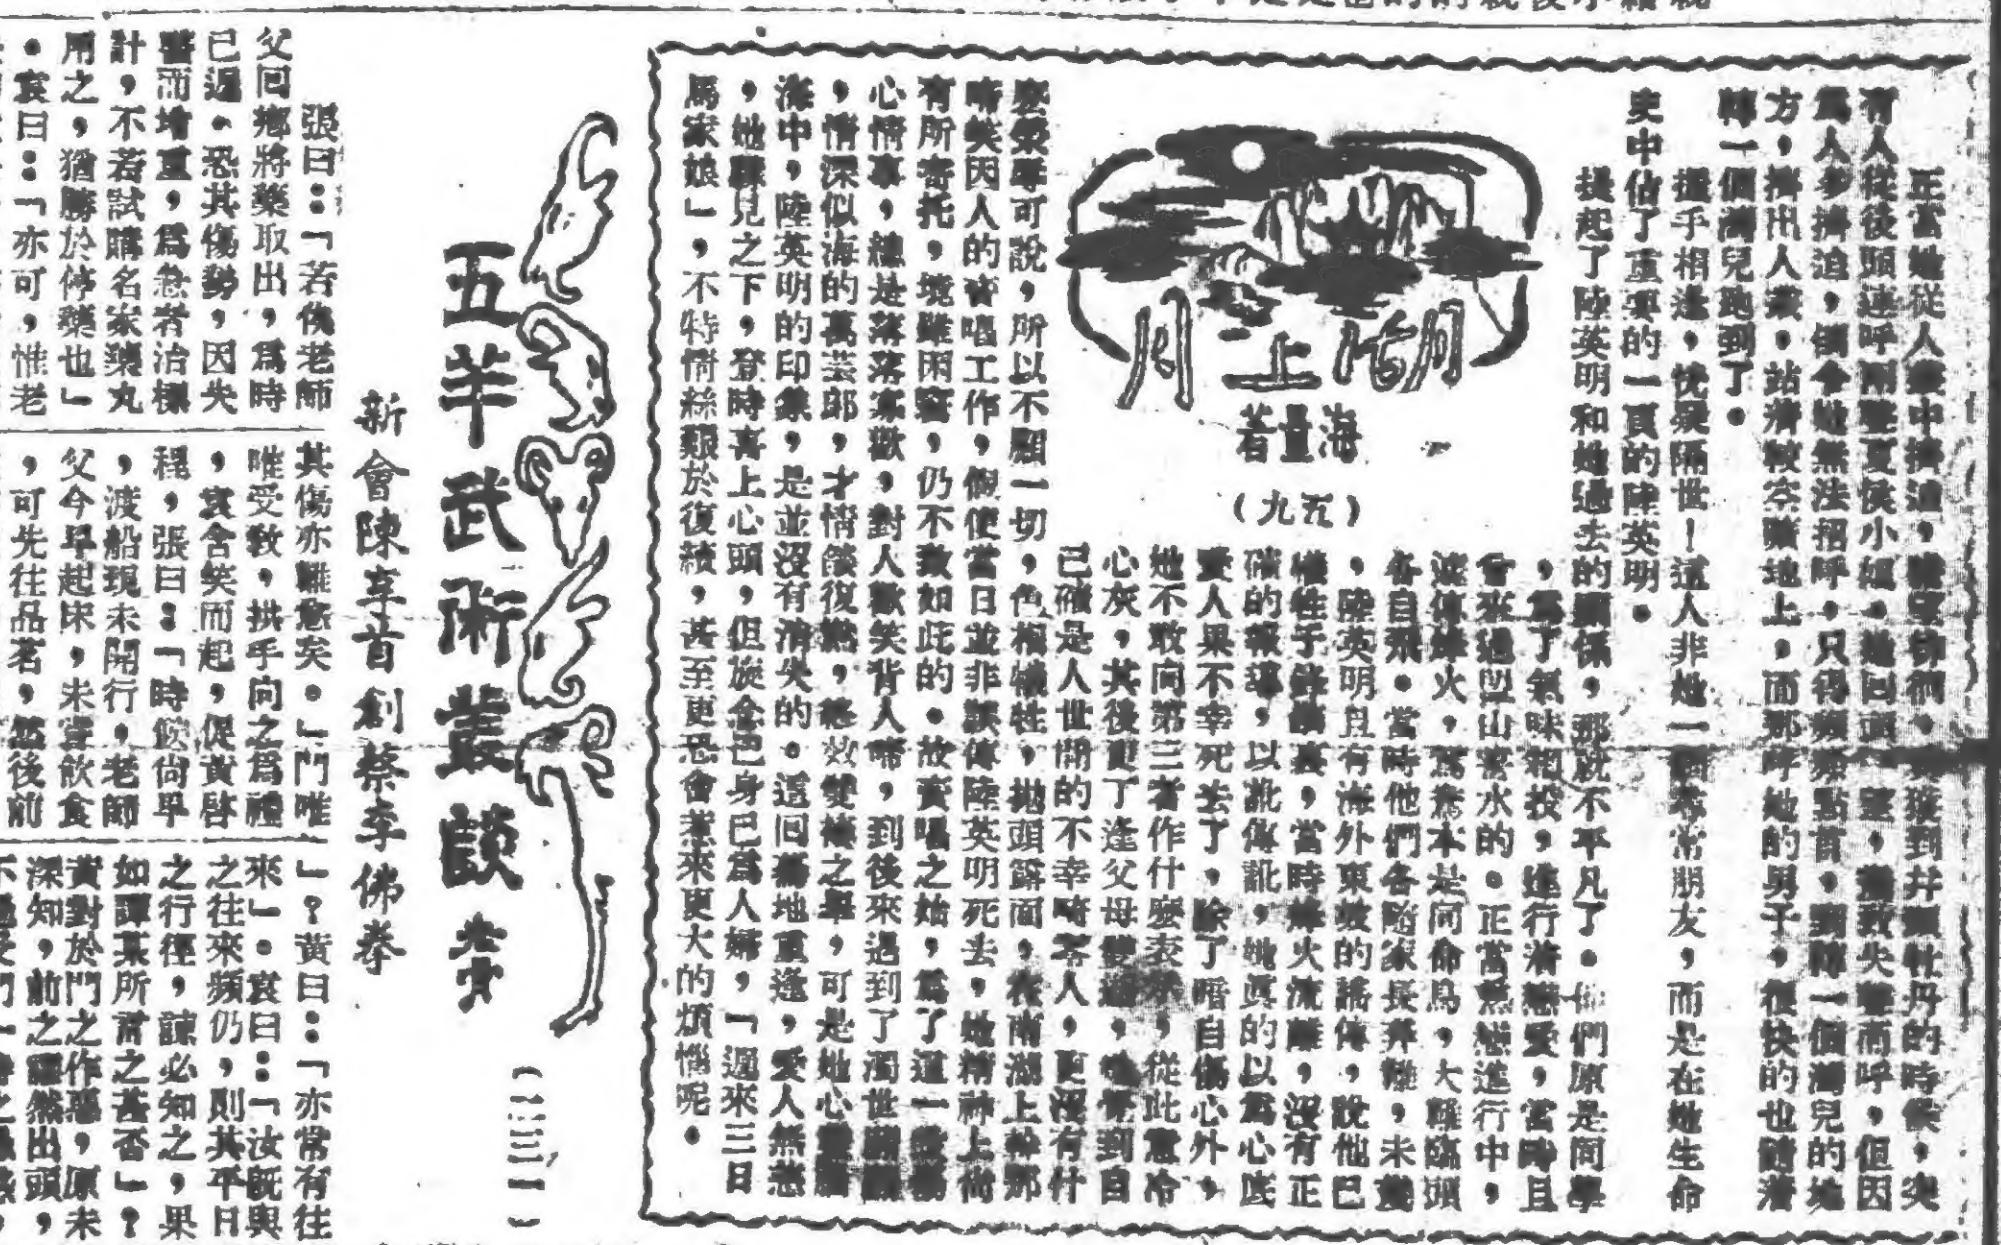 正當她從人叢中擠過,
到井頭牡丹的時候,突
有人從後頭連呼兩聲夏侯小姐。她回頭一望,
失聲而呼,但因
爲人多擠迫,
她無法招呼,只得頻頻點首,
一個灣兒的地
方,擠出人叢,站着較空曠地上,而那呼她的男子,很快的也隨着
轉一個灣兒跑到了。
握手相逢,恍疑隔世!這人非她一個尋常朋友,而是在她生命
史中佔了重要的一頁的陸英明。
提起了陸英明和她過去的關係,那就不平凡了。他們原是同學
,爲了氣味相投,進行着戀愛,當時且
會來過盟山誓水的。正當熱戀進行中,
烽火,鴛鴦本是同命鳥,大難臨頭
各自飛。當時他們各隨家長奔離,未幾
,陸英明且有海外東坡的謠傳,說他已
犧牲于
裏,當時烽火流離,沒有正
確的報導,以訛傳訛,她眞的以爲心底
愛人果不幸死去了,除了暗自傷心外,
她不敢向第三者作什麼表示,從此意冷
心灰,其後更了逢父母雙
到自
己確是人世間的不幸畸零人,更沒有什
麼榮辱可說,所以不顧一切,色相犧牲,拋頭露面,在南湖上幹那
啼笑因人的賣唱工作,假使當日並非誤傳陸英明死去,她精神上尚
有所寄托,境雖困窘,仍不致如此的。故賣唱之始,爲了這一
心情事,總是落落寡歡,對人歡笑背人啼,到後來遇到了濁世
,情深似海的萬芸郎,才情燄復燃,
效雙棲之舉,可是她心
海中,陸英明的印象,是並沒有消失的。這回驀地重逢,愛人無恙
,她驟見之下,登時喜上心頭,但旋念已身已爲人婦,「過來三日
馬家娘」,不特情絲艱於復續,甚至更恐會惹來更大的煩惱呢。
湖上月
海量著
(五九)
五羊武術叢談
(二三一)
新會陳享首創蔡李佛拳
張曰:「若俟老師
父回鄉將藥取出,爲時
已遲。恐其傷勢,因失
醫而增重,爲急者治標
計,不若試購名家藥丸
用之,猶勝於停藥也」
。袁曰:「亦可,惟老
其傷亦難愈矣。」門唯
唯受教,拱手向之爲禮
,袁含笑而起,促黃啓
程,張曰:「時候尙早
,渡船現未開行,老師
父今早起床,未嘗飲食
,可先往品茗,然後前
」?黃曰:「亦常有往
來」。袁曰:「汝旣與
之往來頻仍,則其平日
之行徑,諒必知之,果
如譚某所言之甚否」?
黃對於門之作惡,原未
深知,前之
然出頭,